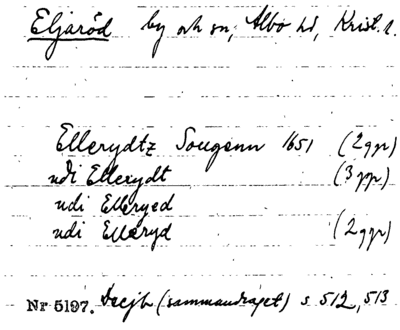 Eljaröd by och sn, Albo hd, Krist. l.
Ellerydtz Sougenn 1651 (2 ggr)
udi Ellerydt (3 ggr)
udi Elleryed
udi Elleryd (2 ggr)
Nr 5197. Decjb (sammandraget) s 512, 513